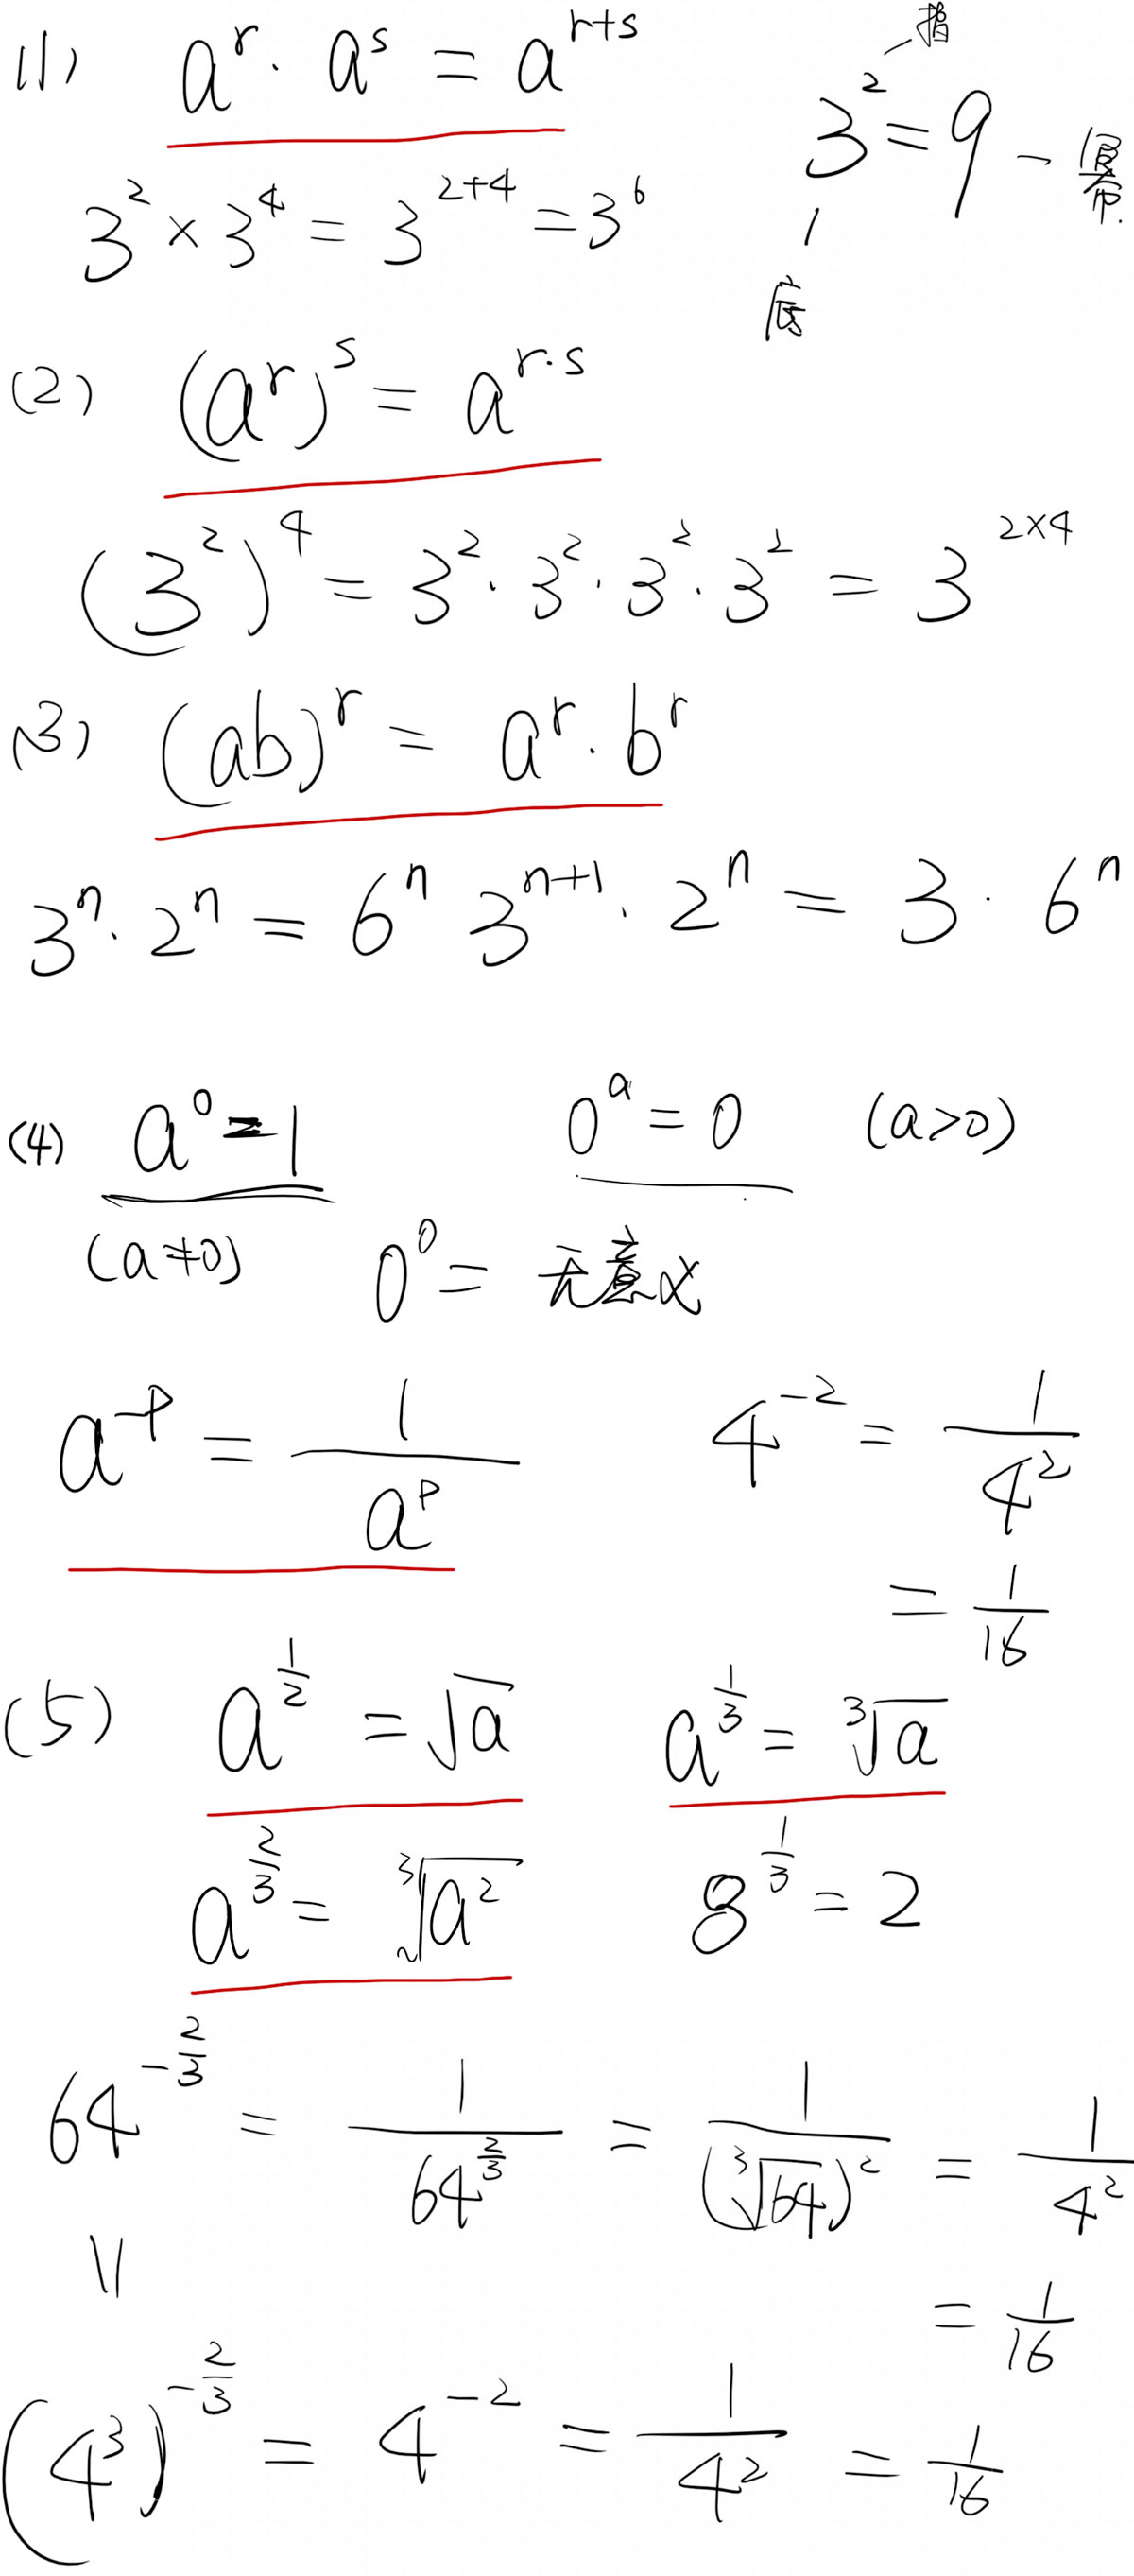 (1) a^r · a^s = a^{r+s}
3^2 = 9 — 幂
指
底
3^2 × 3^4 = 3^{2+4} = 3^6
(2) (a^r)^s = a^{r·s}
(3^2)^4 = 3^2 · 3^2 · 3^2 · 3^2 = 3^{2×4}
(3) (ab)^r = a^r · b^r
3^n · 2^n = 6^n 3^{n+1} · 2^n = 3 · 6^n
(4) a^0 = 1 0^a = 0 (a>0)
(a≠0) 0^0 = 无意义
a^{-p} = \frac{1}{a^p} 4^{-2} = \frac{1}{4^2}
= \frac{1}{16}
(5) a^{\frac{1}{2}} = \sqrt{a} a^{\frac{1}{3}} = \sqrt[3]{a}
a^{\frac{2}{3}} = \sqrt[3]{a^2} 8^{\frac{1}{3}} = 2
64^{-\frac{2}{3}} = \frac{1}{64^{\frac{2}{3}}} = \frac{1}{(\sqrt[3]{64})^2} = \frac{1}{4^2}
= \frac{1}{16}
||
(4^3)^{-\frac{2}{3}} = 4^{-2} = \frac{1}{4^2} = \frac{1}{16}